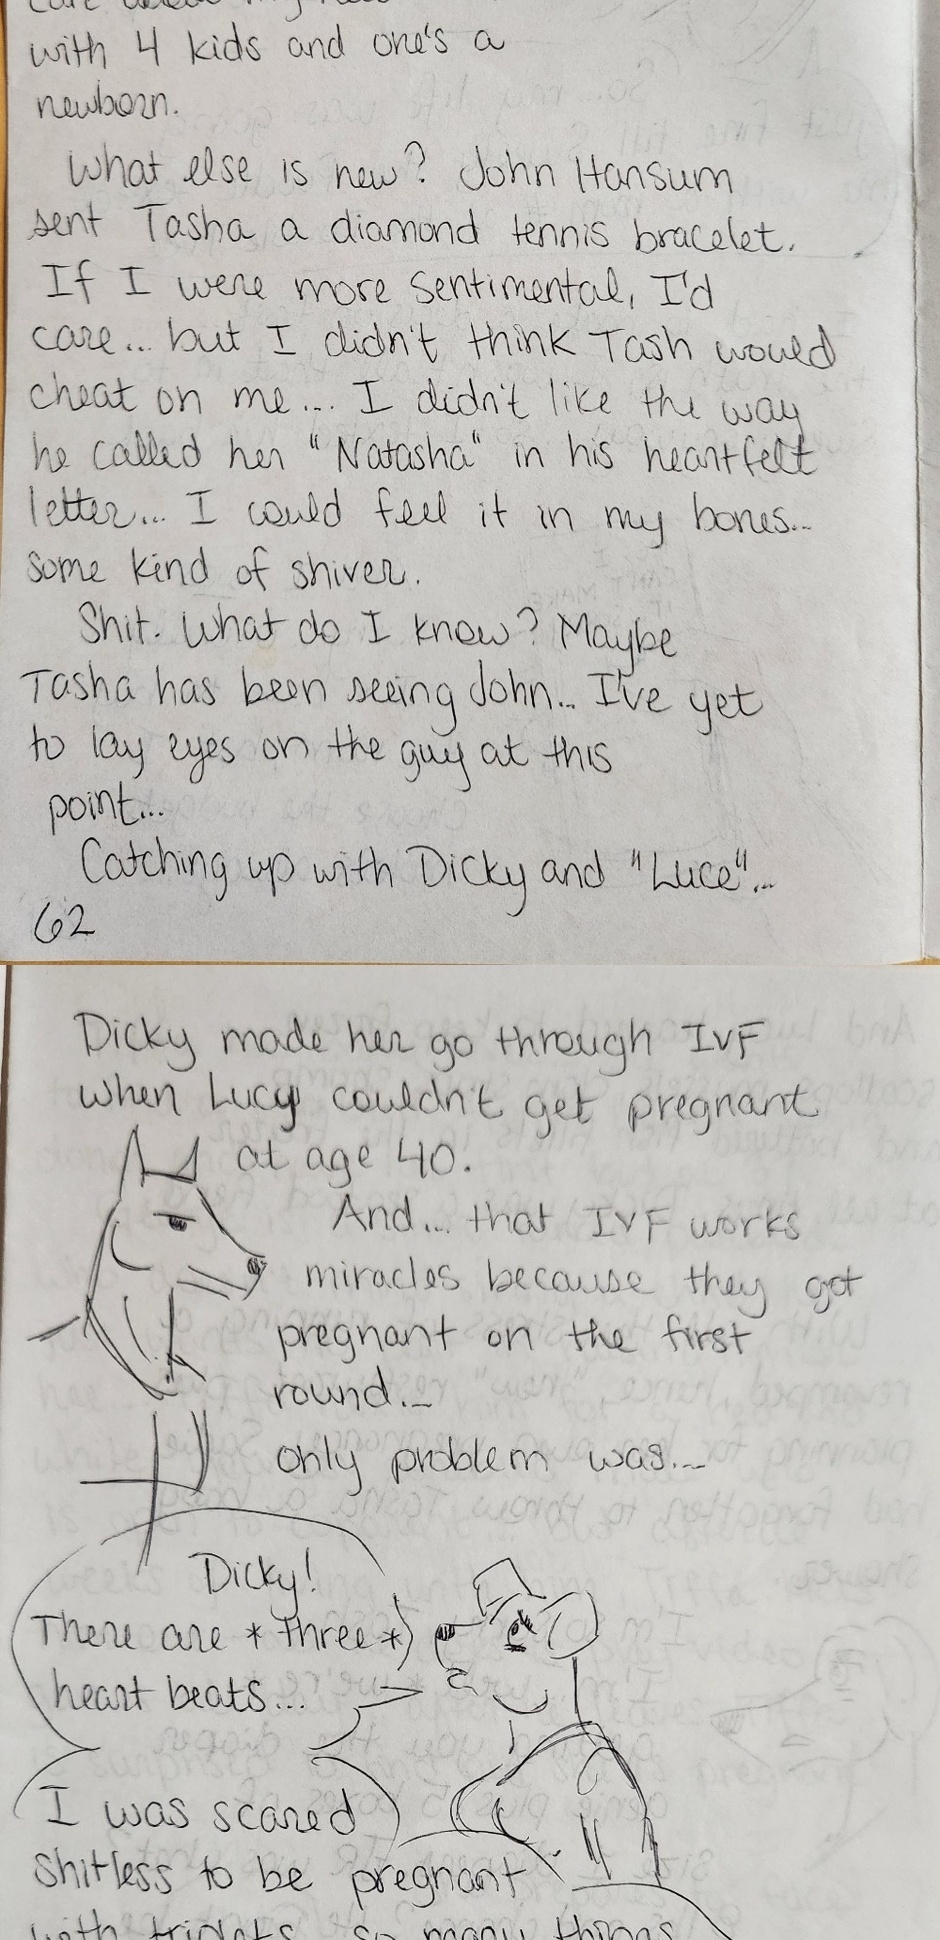 with 4 kids and one's a
newborn.
What else is new? John Hansum
sent Tasha a diamond tennis bracelet.
If I were more sentimental, I'd
care... but I didn't think Tash would
cheat on me... I didn't like the way
he called her "Natasha" in his heartfelt
letter... I could feel it in my bones...
some kind of shiver.
Shit. What do I know? Maybe
Tasha has been seeing John... I've yet
to lay eyes on the guy at this
point...
Catching up with Dicky and "Luce"...
62
Dicky made her go through IVF
when Lucy couldn't get pregnant
at age 40.
And... that IVF works
miracles because they got
pregnant on the first
round...
only problem was...
Dicky!
There are *three*
heart beats...
I was scared
shitless to be pregnant
with triplets so many things